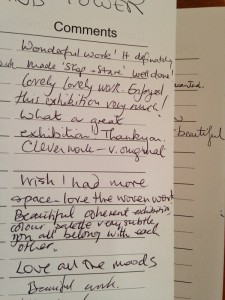 TOWER
Comments
Wonderful work! It definitely
made 'Stop & Stare' well done!
Lovely lovely work. Enjoyed
this exhibition very much!
What a great
exhibition Thankyou.
Clever work – v. original
Wish I had more
space – love the woven work
Beautiful coherent exhibition
colour palette very subtle
you all belong with each
other.
Love all the moods
Beautiful work.
beautiful